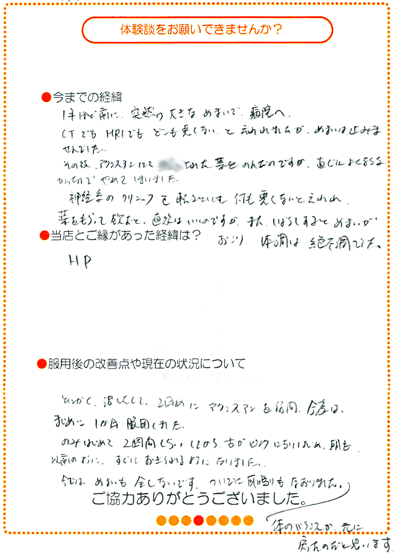 体験談をお願いできませんか?
●今までの経緯
1年ほど前に、突然の大きなめまいで、病院へ。
CTでもMRIでもどこも悪くない、と言われましたが、めまいは止みま
せんでした。
その後、
のんだのですが、
やめてしまいました。
神経系のクリニックを 何も悪くないと言われ、
薬をもらって飲むと、直後はいいのですが、また、しばらくするとめまいが
おこり 体調は絶不調でした。
●当店とご縁があった経緯は?
HP
●服用後の改善点や現在の状況について
とにかく、苦しくて、2回めにアクシスアンを 今度は、
まじめに1か月服用しました。
のみはじめて2週間くらいしてから、舌がピンクになりはじめ、朝も
以前のように、すぐにおきられるようになりました。
今では、めまいも全くないです。ついでに耳鳴りもなおりました。
ご協力ありがとうございました。
体のバランスが、元に
戻ったのだと思います